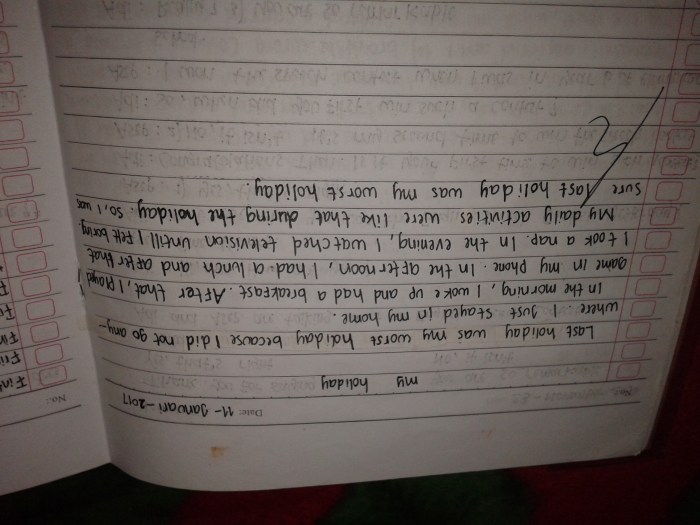 No.:
Date: 11- Januari -2017
my holiday
Last holiday was my worst holiday because I did not go any-
where. I Just stayed in my home.
In the morning, I woke up and had a breakfast. After that, I played
game in my phone. In the afternoon, I had a lunch and after that
I took a nap. In the evening, I watched television untill I felt boring.
My daily activities were like that during the holiday. So, I was
sure last holiday was my worst holiday.
No.:
Fin
Fri